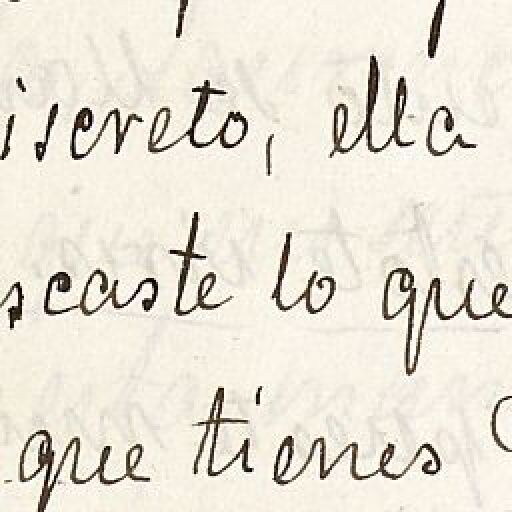 iscreto, ella
scaste lo que
que tienes